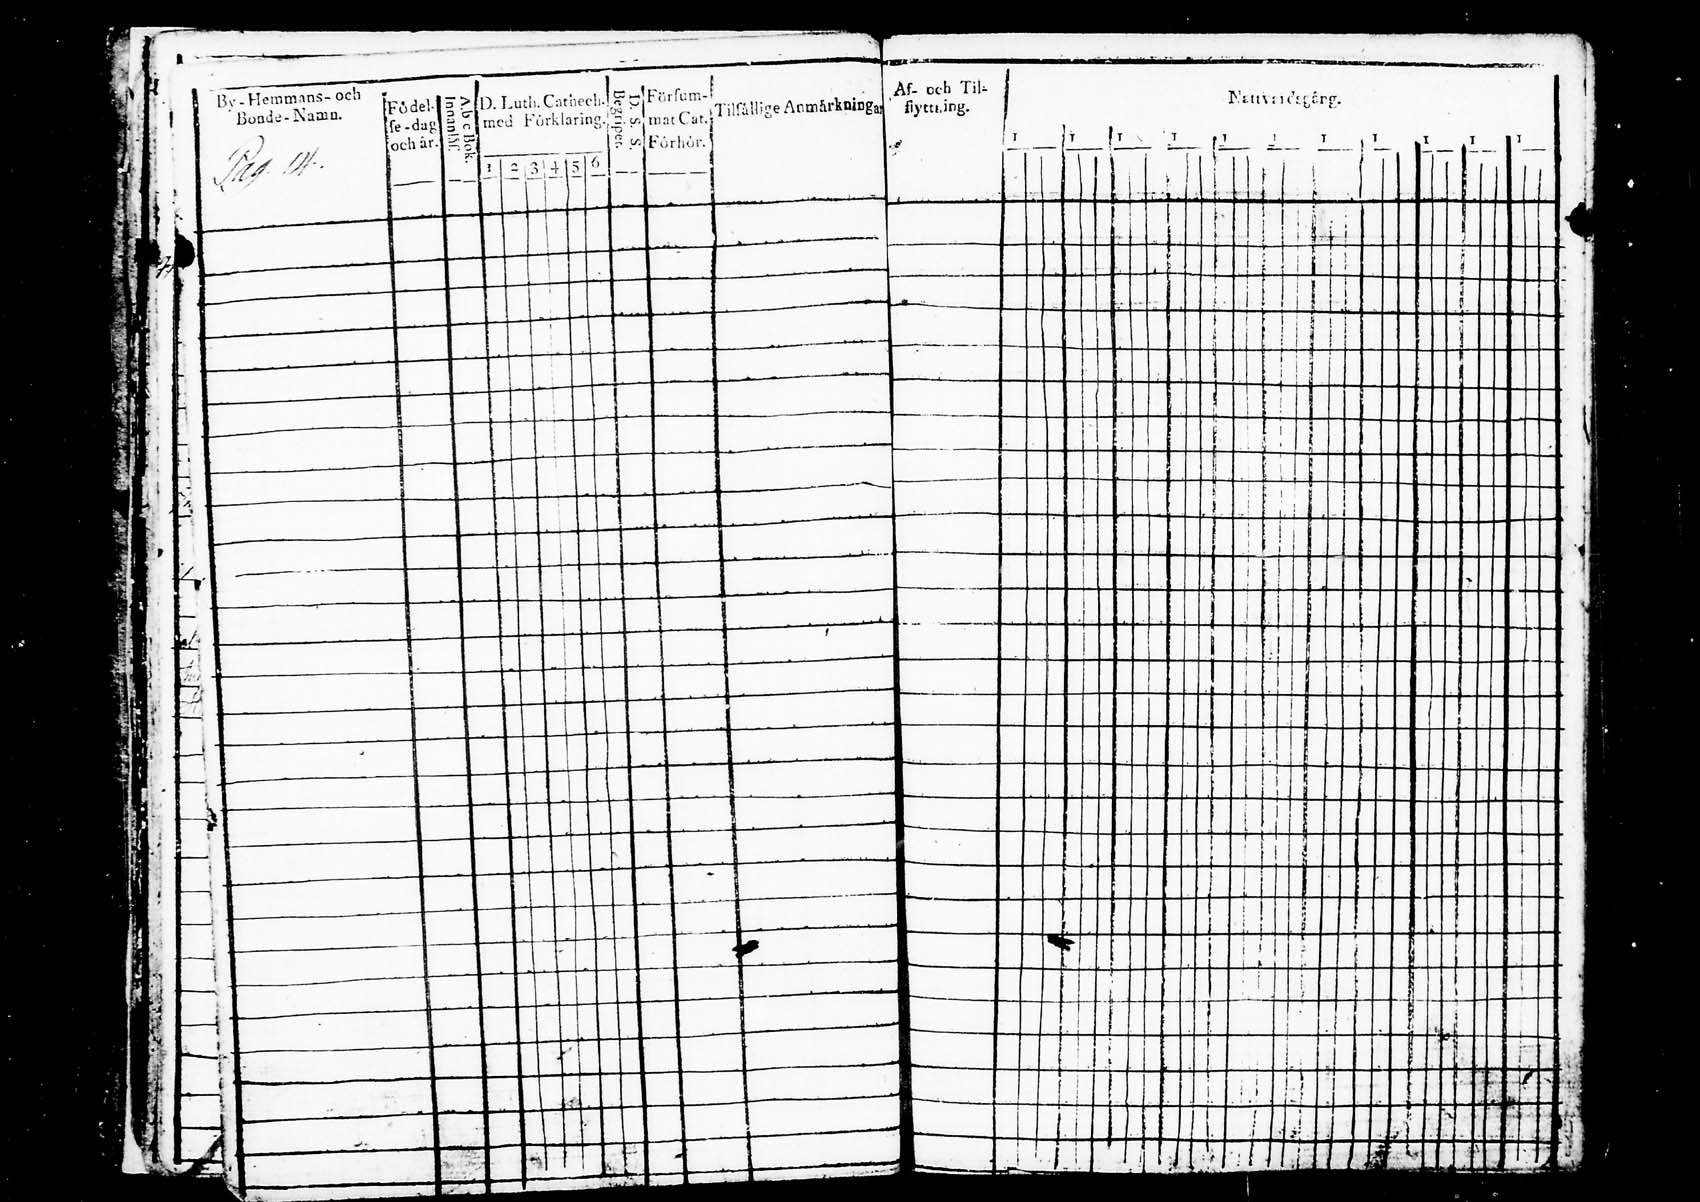 By-Hemmans- och
Bonde-Namn.
Pag. 14.
Födel-
se-dag
och år.
A b c Bok.
Innanläs.
D. Luth. Cathech.
med Förklaring.
1 2 3 4 5 6
D. S. S.
Begriper.
Försum-
mat Cat.
Förhör.
Tilfällige Anmärkningar
Af- och Til-
flyttning.
Nattvardsgång.
1 1 1 1 1 1 1 1 1 1 1